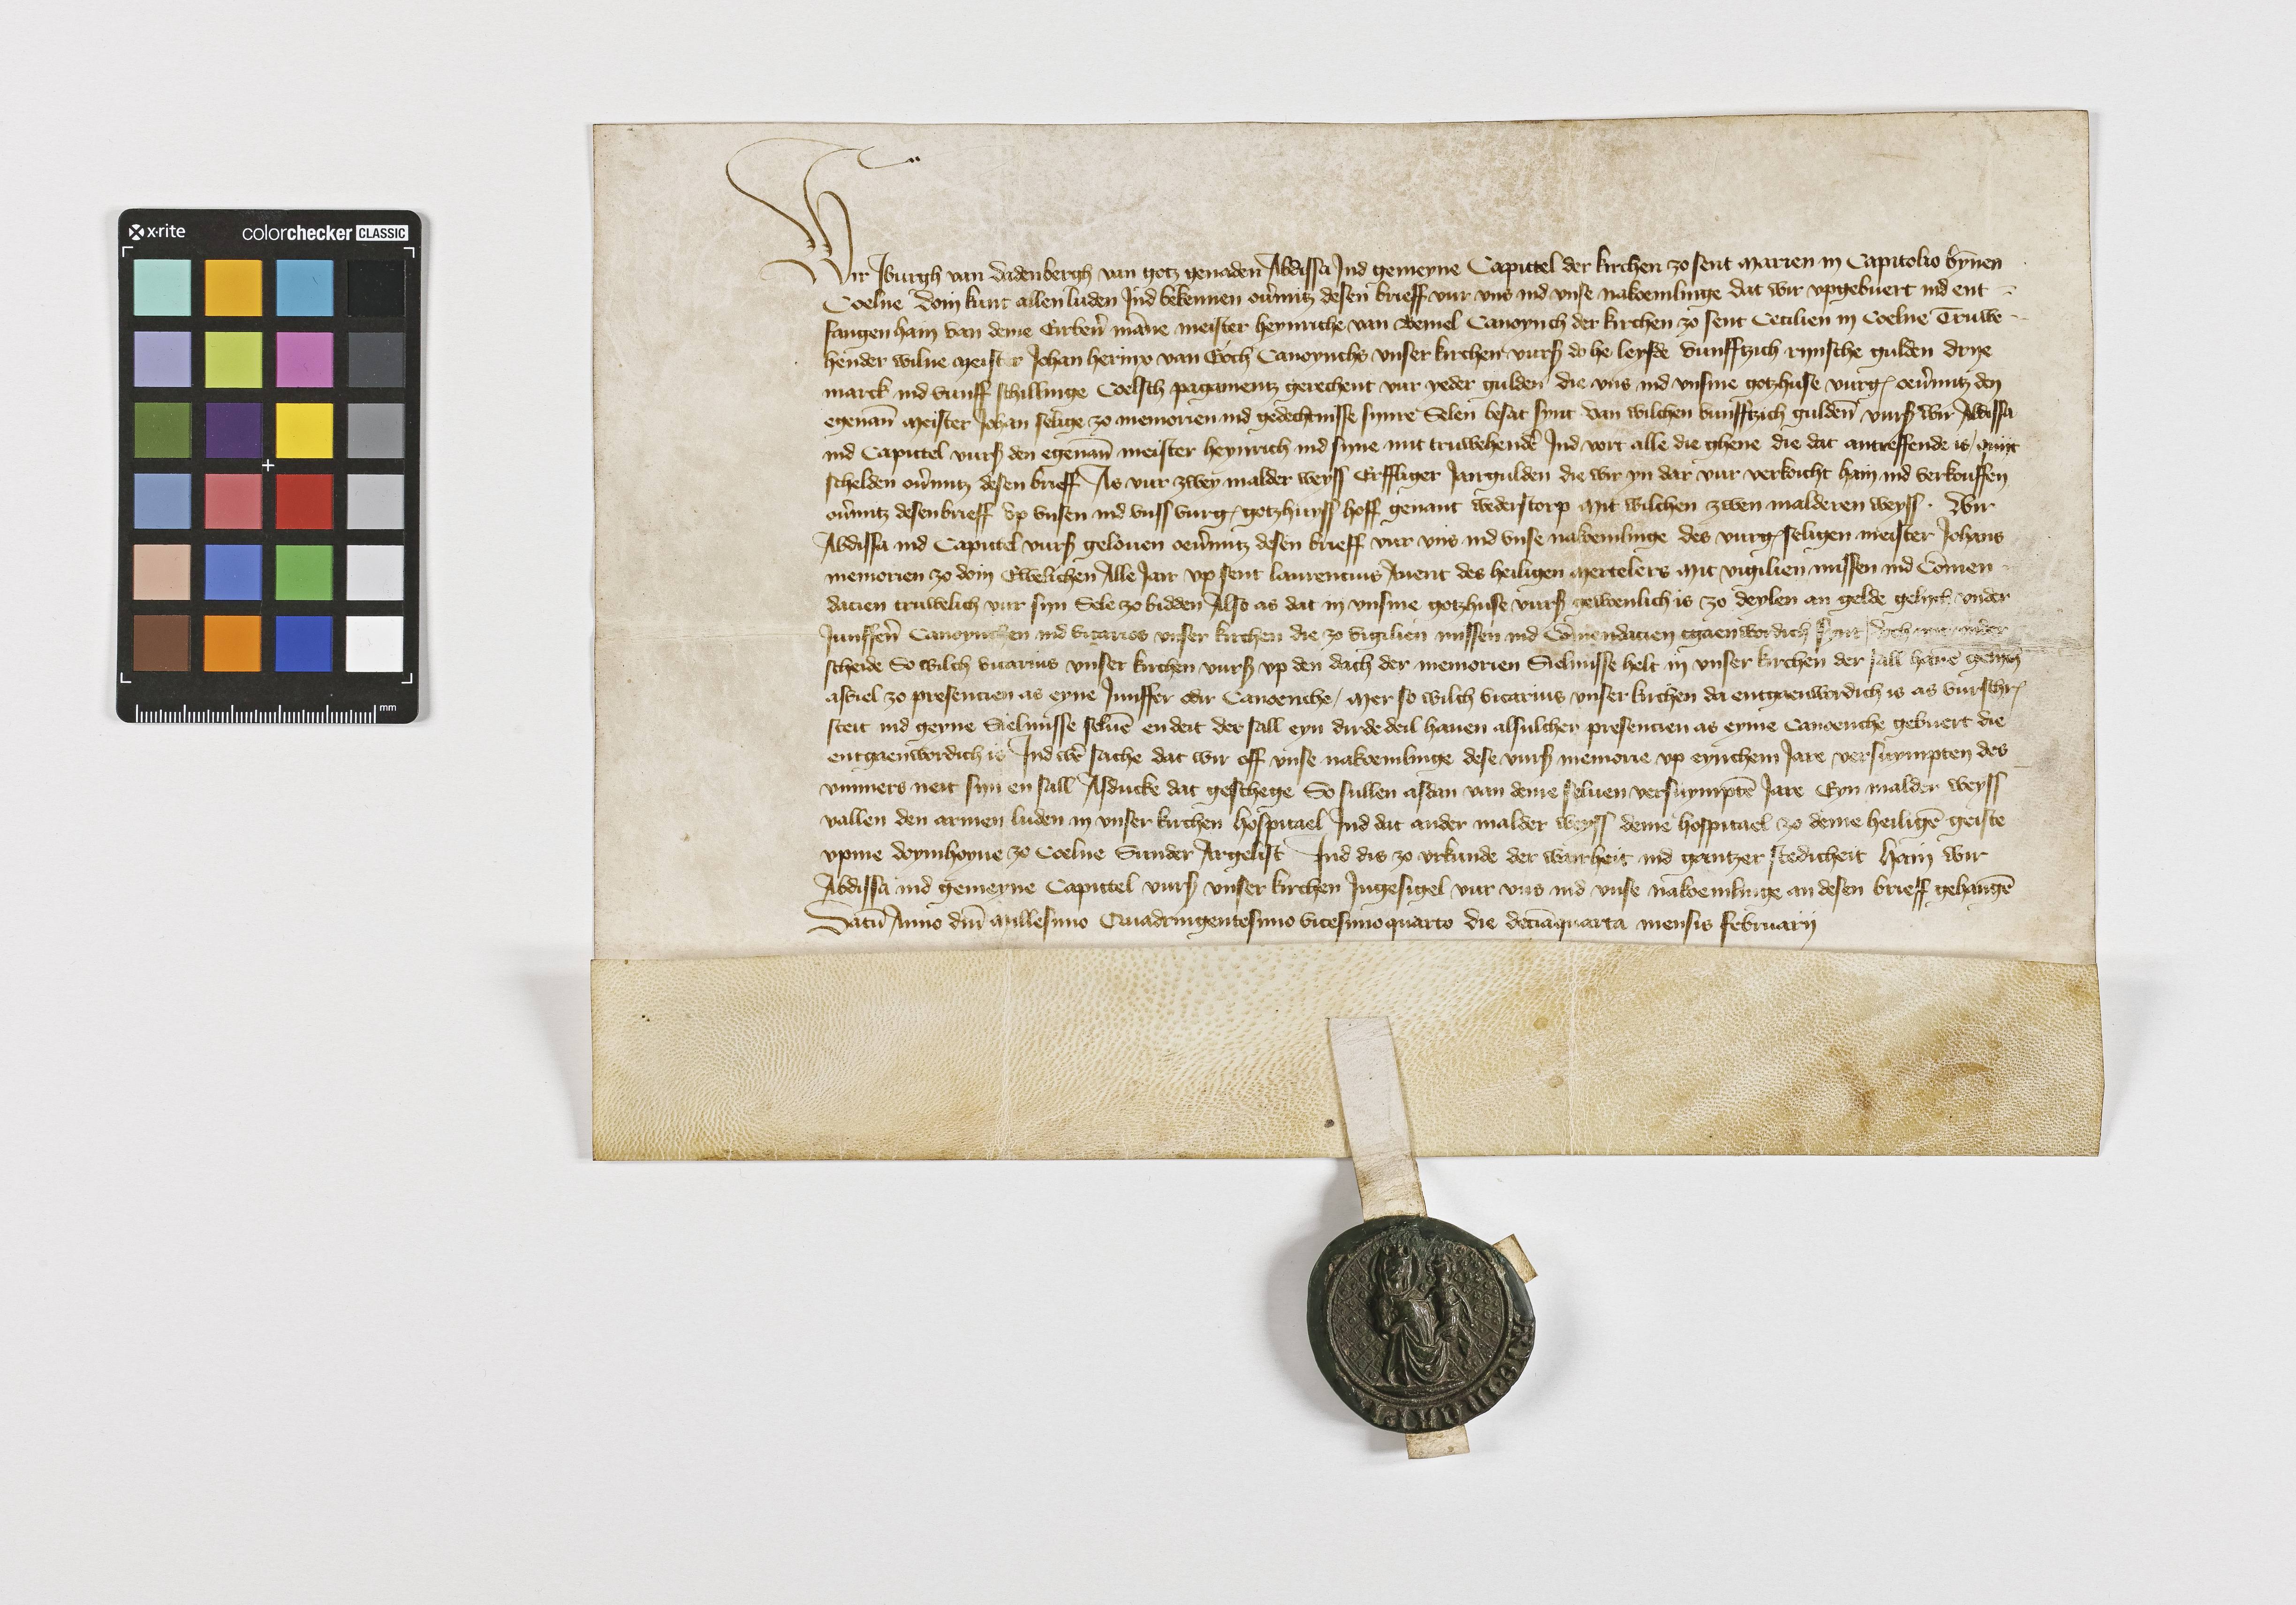 x·rite colorchecker CLASSIC
mm
Wir Iburgh van dadenbergh van gotz genaden Abdissa Jnd gemeyne Capittel der kirchen zo sent Marien in Capitolio bȳnen
Coelne Doin kunt allen luden Jnd bekennen ouͥmitz desen brieff vur vns ind vnse nakoemlinge dat wir vpgebuert ind ent
fangen hain van deme Eirberͥ māne meister heynriche van Bemel Canoynch der kirchen zo sent Cecilien in Coelne Truwe
hender wilne Meister Johan herinx van Goch Canoynchs vnser kirchen vurß do he lefde vunfftzich rynsche gulden drye
marck ind vunff schillinge Coelsch pagamentz gerechent vur yeder gulden die vns ind vnsme gotzhuse vurg oeuͥmitz den
egenan̄ Meister Johan selige zo memorien ind gedechtnisse synre Selen besat synt Van wilchen vunfftzich guldēn vurß wir Abdissa
ind Capittel vurß den egenan̄ meister heynrich ind syne mit truwehendē Jnd vort alle die ghene die dat antreffende is quijt
schelden ouͥmitz desen brieff As vur zwey malder weyss Erffliger Jairgulden die wir yn dar vur verkoicht hain ind verkouffen
ouͥmitz desen brieff Vp vnsen ind vnss vurg gotzhuyss hoff genant wederstorp Mit wilchen zwen malderen weyss · Wir
Abdissa ind Capittel vurß gelouen oeuͥmitz desen brieff vur vns ind vnse nakoemlinge des vurg seligen meister Johans
memorien zo doin Ewelichen Alle Jair vp sent laurencius Auent des heiligen Mertelers Mit vigilien missen ind Cōmen
dacien truwelich vur syn Sele zo bidden Also as dat in vnsme gotzhuse vurß gewoenlich is zo deylen an gelde gelych vnder
Junfferͥ Canoynchen ind vicarios vnser kirchen die zo vigilien missen ind Cōmendacien tgaenwordich synt
scheide So wilch vicarius vnser kirchen vurß vp den dach der memorien Sielmisse helt in vnser kirchen der sall hauē gelych
asviel zo presencien as eyne Junffer odir Canoenche / Mer so wilch vicarius vnser kirchen da entgaenwordich is as vurschr
steit ind geyne Sielmisse seluē en deit der sall eyn dirdedeil hauen alsulcher presencien as eyme Canoenche gebuert die
entgaenwordich is Jnd wē sache dat wir off vnse nakoemlinge dese vurß memorie vp eynchem Jare versuympten des
vmmers neit syn en sall Asducke dat geschege So sullen asdan van deme seluen versuymptē Jare Eyn malder weyss
vallen den armen luden in vnser kirchen hospitael Jnd dat ander malder weyss deme hospitael zo deme heiligē geiste
vpme doymhoyue zo Coelne Sunder Argelist Jnd dis zo vrkunde der wairheit ind gantzer stedicheit Hain wir
Abdissa ind gemeyne Capittel vurß vnser kirchen Jngesigel vur vns ind vnse nakoemlinge an desen brieff gehangē
Datū Anno dn̄i Millesimo Quadringentesimo vicesimoquarto die decīaquarta mensis februarij